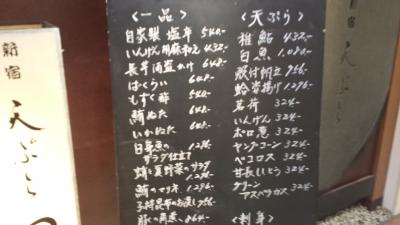 新宿
天ぷら
<一品>
自家製 塩辛 540.-
いんげん胡麻和え 432.-
長芋酒盗かけ 648.-
はくらい 648.-
もずく酢 540.-
鮪ぬた 648.-
いかぬた 648.-
白身魚の
サラダ仕立て 1,296.-
蛸と夏野菜のサラダ 1,296.-
鮪のマリネ 1,296.-
子持昆布のお浸し 756.-
豚の角煮 864.-
<天ぷら>
稚鮎 432.-
白魚 1,080.-
殻付帆立 756.-
蛤岩揚げ 1,296.-
茗荷 324.-
いんげん 324.-
ポロ葱 324.-
ヤングコーン 324.-
ペコロス 324.-
甘長しし唐 324.-
グリーン
アスパラガス 324.-
<刺身>
天ぷら